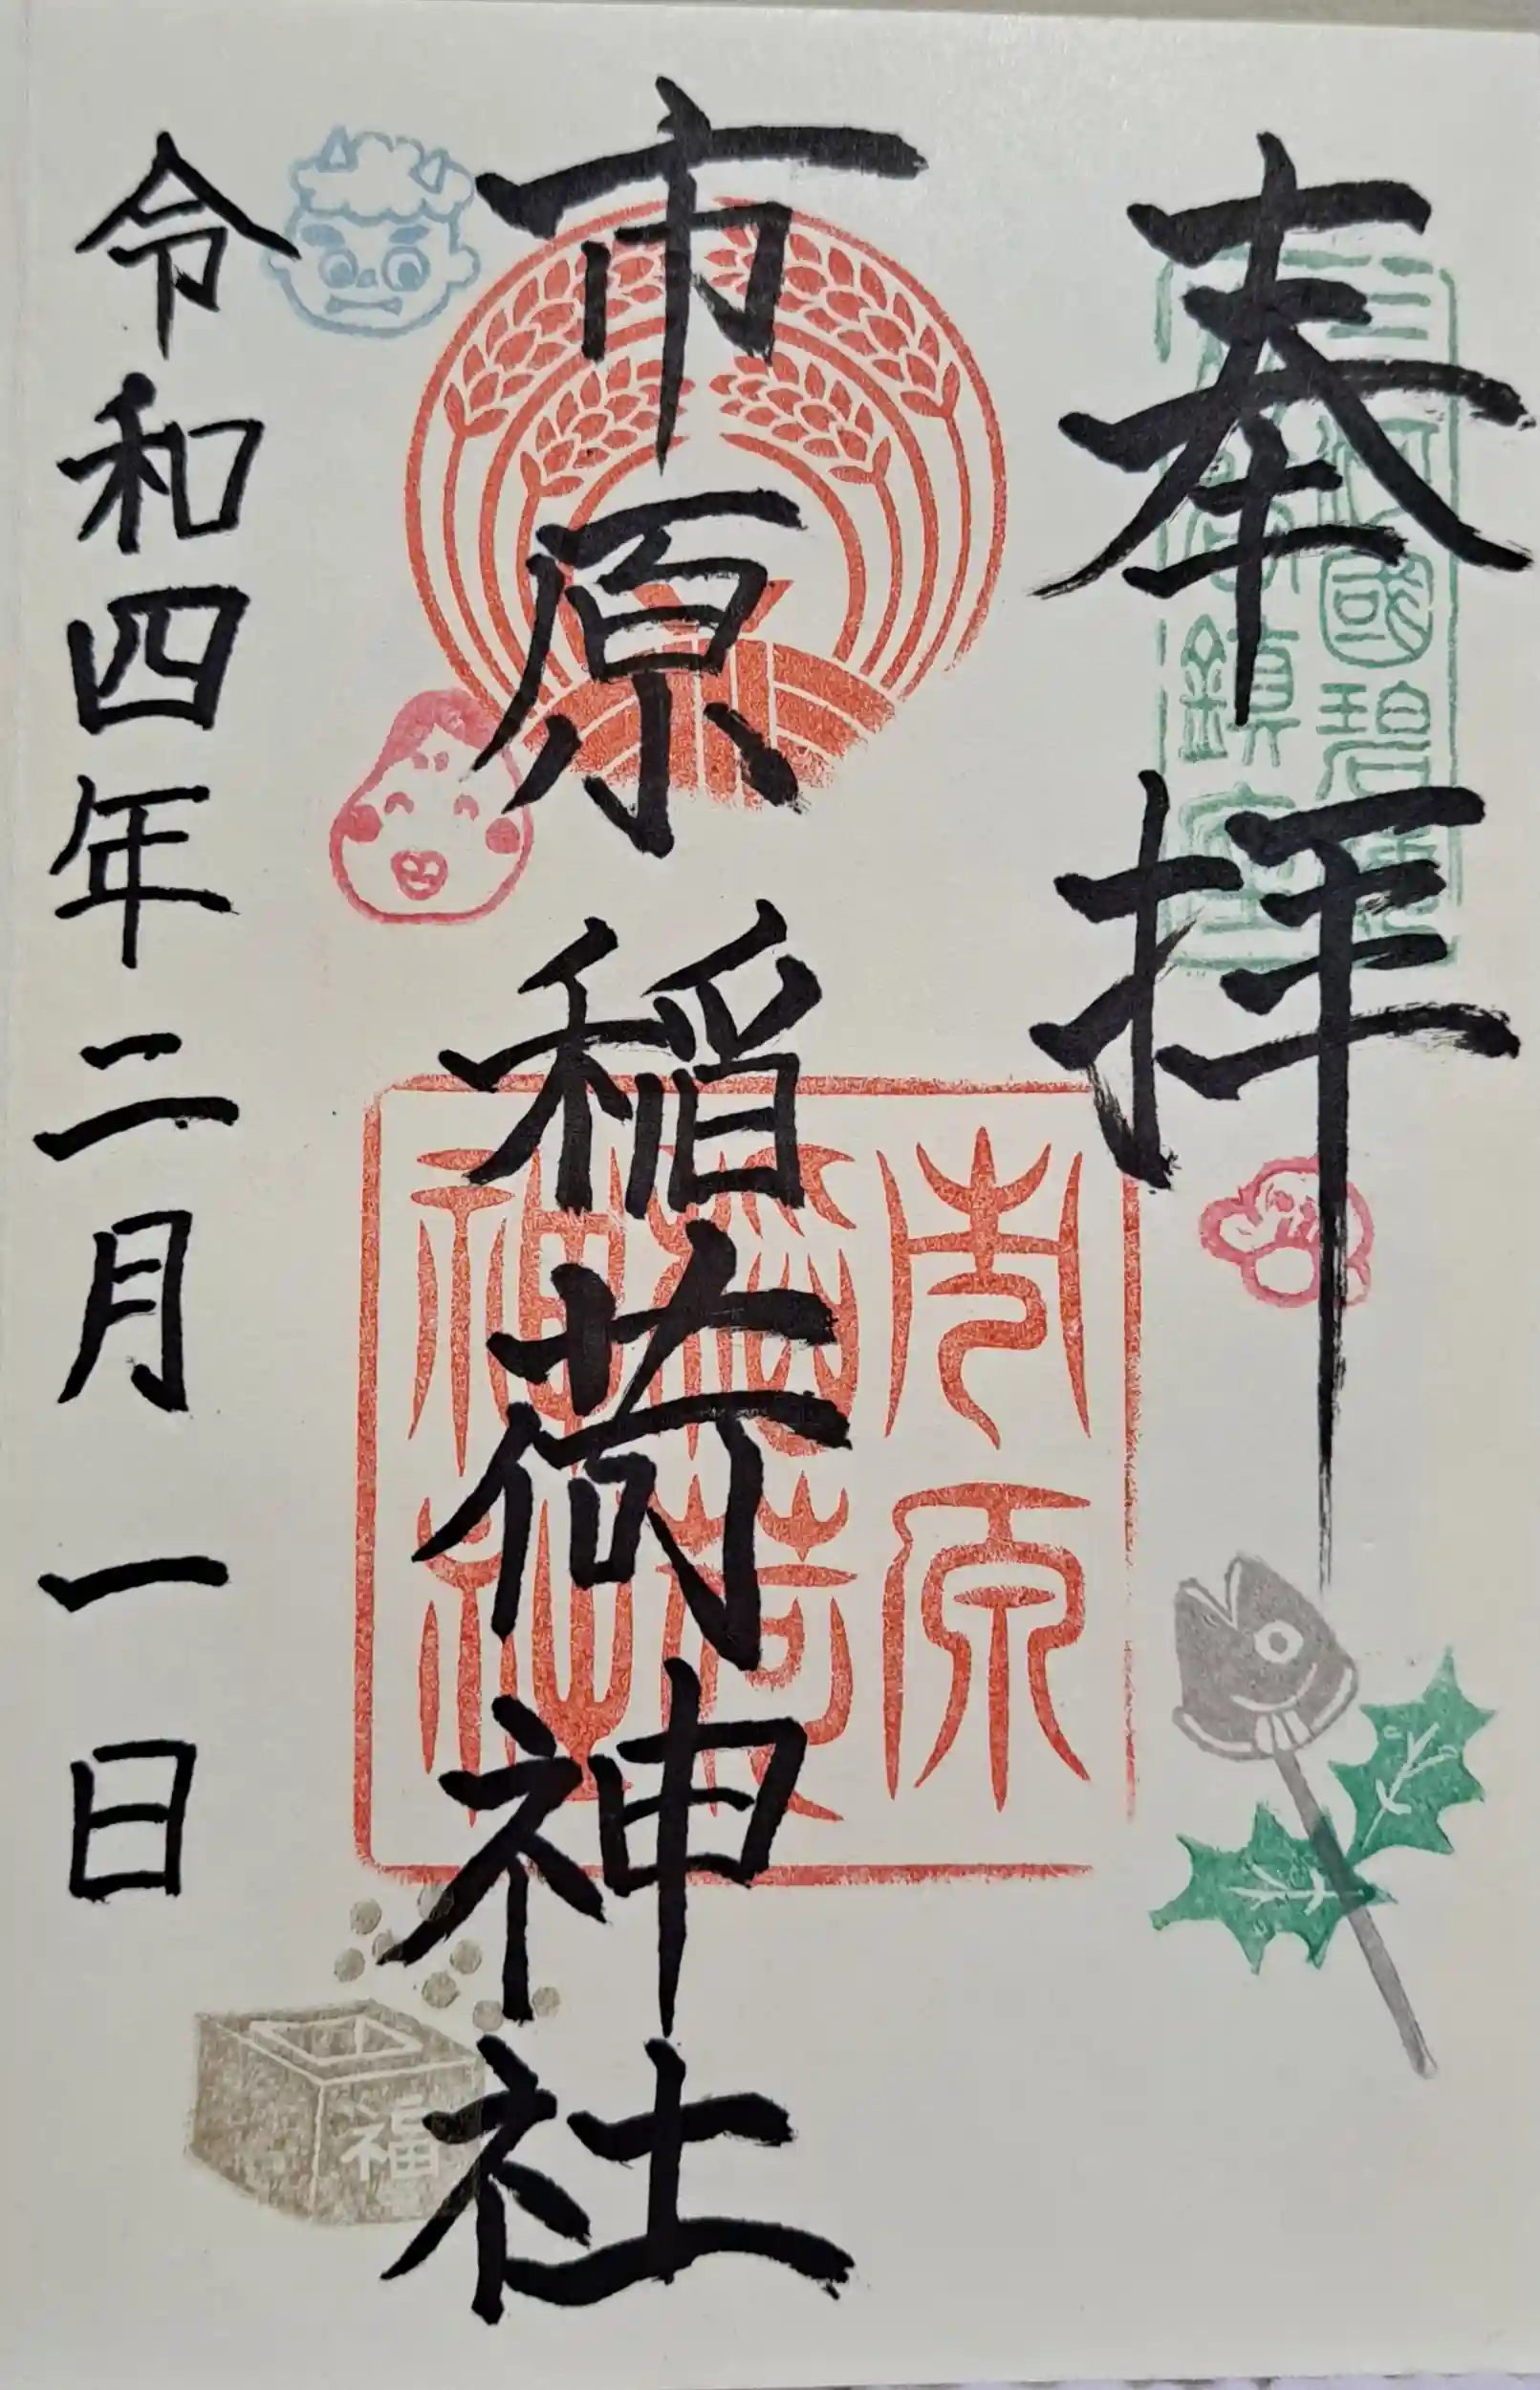 奉拝
市原稲荷神社
令和四年二月一日
市原
稲荷
神社
福